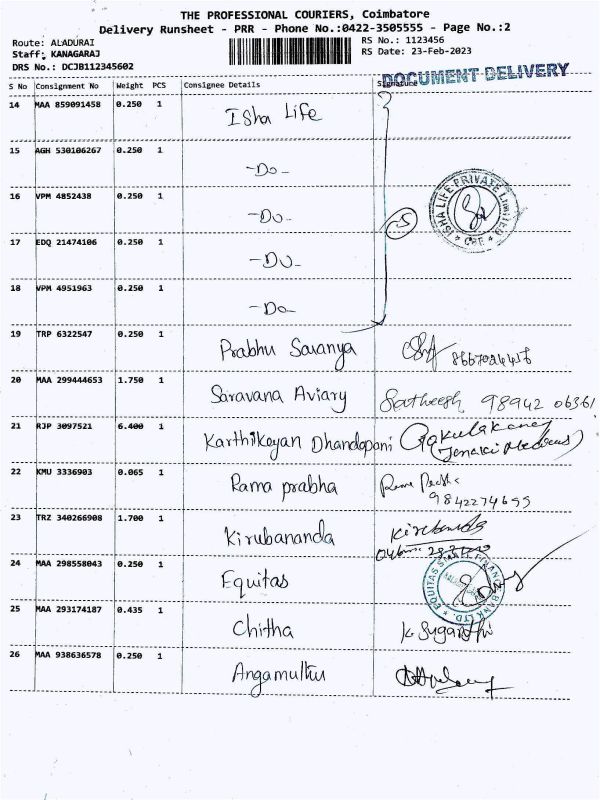 THE PROFESSIONAL COURIERS, Coimbatore
Delivery Runsheet - PRR - Phone No.:0422-3505555 - Page No.:2
Route: ALADURAI
RS No.: 1123456
Staff: KANAGARAJ
RS Date: 23-Feb-2023
DRS No.: DCJB112345602
DOCUMENT DELIVERY
S No Consignment No Weight PCS Consignee Details Signature
14 MAA 859091458 0.250 1 Isha Life
15 AGH 530106267 0.250 1 -Do-
16 VPM 4852438 0.250 1 -Do-
17 EDQ 21474106 0.250 1 -Do-
18 VPM 4951963 0.250 1 -Do-
5
ISHA LIFE PRIVATE LIMITED
* CBE *
19 TRP 6322547 0.250 1 Prabhu Saranya
20 MAA 299444653 1.750 1 Saravana Aviary Satheesh 98942 06361
21 RJP 3097521 6.400 1 Karthikeyan Dhandapani Gokulakannan
22 KMU 3336903 0.065 1 Rama prabha
9842274655
23 TRZ 340266908 1.700 1 Kirubananda Kirubanda
24 MAA 298558043 0.250 1 Equitas
EQUITAS SMALL FINANCE BANK LTD.
25 MAA 293174187 0.435 1 Chitha K. Suganthi
26 MAA 938636578 0.250 1 Angamuthu